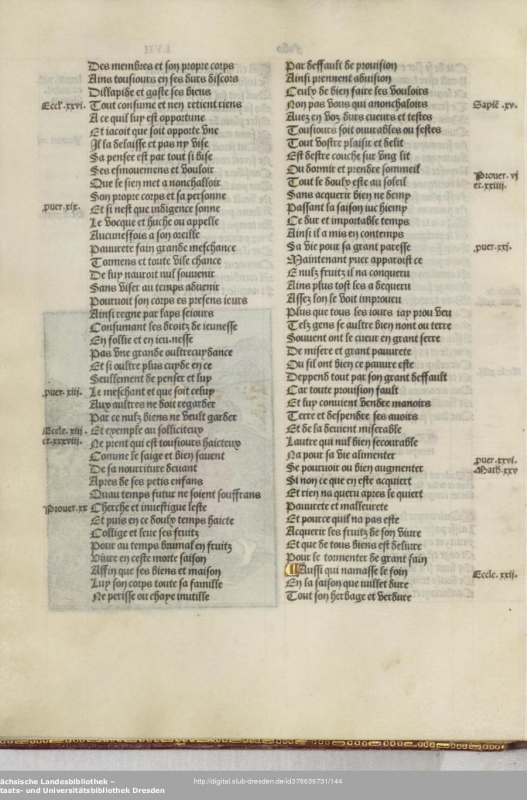 Des membres et son propre corps
Ains tousiours en ses durs discors
Dissapide et gaste ses biens
Eccl. xxvi. Tout consume et nen retient riens
A ce quil luy est oportune
Et iacoit que soit oporte vne
Il la delaisse et pas ny vise
Sa pensee est par tout si bise
Ses esmouemens et vouloir
Que le sien met a nonchalloir
Son propre corps et sa personne
puer. xix. Et si nest que indigence sonne
Le vocque et huche ou appelle
Aucunesfois a son oreille
Pauurete fain grande meschance
Tormens et toute vile chance
De luy nauroit nul souuenir
Sans viser au temps aduenir
Pouruoit son corps es presens iours
Ainsi regne par laps seiours
Consumant les droitz de ieunesse
En follie et en ieunesse
Pas vne grande oultrecuydance
Et si oultre plus cuyde en ce
Seullement de penser et luy
puer. xiii. Le meschant et que soit celuy
Auy aultres ne doit regarder
Par ce nulz biens ne veult garder
Eccle. xiii Et exemple au solliciteuy
et. xxxviii. Ne prent qui est tousiours haicteuy
Comme le saige et bien sauent
De sa nourriture deuant
Apres de ses petis enfans
Quau temps futur ne soient souffrans
Prouer. xx Cherche et inuestigue leste
Et puis en ce douly temps haicte
Collige et leue ses fruitz
Pour au temps brumal en fruitz
Viure en ceste morte saison
Affin que ses biens et maison
Luy son corps toute sa famille
Ne perisse ou chaye inutille
Par deffault de prouision
Ainsi prennent aduision
Ceuly de bien faire les vouloirs
Non pas vous qui anonchaloirs Sapie. xv.
Auez en voz durs cueurs et testes
Tousiours soit ouurables ou festes
Tout vostre plaisir et delit
Est destre couche sur vng lit
Ou dormir et prendre sommeil
Tout le douly este au soleil Prouer. vi
et. xxiiii.
Sans acquerir bien ne semer
Passant la saison iuc hiemp
Ce dur et importable temps
Ainsi il a mis en contemps
Sa vie pour sa grant paresse puer. xxi.
Maintenant yuer apparoist ce
E nulz fruitz il na conqueru
Ains plus tost les a dequeru
Assez lon le voit improueu
Plus que tous les iours iay prou veu
Telz gens se aultre bien nont ou terre
Souuent ont le cueur en grant serre
De misere et grant pauurete
Ou sil ont bien ce pauure este
Deppend tout par son grant deffault
Car toute prouision fault
Et luy conuient vendre manoirs
Terre et despendre ses auoirs
Et de la deuient miserable
Lautre qui nul bien secourable
Na pour sa vie alimenter puer. xxvi.
Se pouruoir ou bien augmenter Math. xxv
Si non ce que en este acquiert
Et rien na queru apres le quiert
Pauurete et malleurete
Et pource quil na pas este
Acquerir les fruitz de son viure
Et que de tous biens est deliure
Pour le tormenter de grant fain
Aussi qui namasse le foin Eccle. xxii.
En la saison que iuillet dure
Tout son herbage et verdure
ächsische Landesbibliothek –
taats- und Universitätsbibliothek Dresden
http://digital.slub-dresden.de/id378636731/144